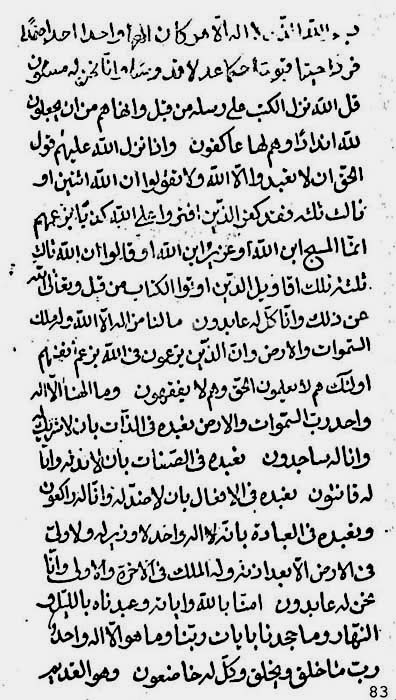 الله الا هو كان الها واحدا احدا صمدا
فردا حيا قيوما حكما عدلا وانا نحن له مسلمون
قل الله نزل الكتب على رسله من قبل وانهاهم من ان يجعلون
لله اندادا وهم لها عاكفون وانا نزل الله عليهم قول
الحق ان لا تعبدوا الا الله ولا تقولوا ان الله اثنين او
ثالث ثلثه فقد كفر الذين افتروا على الله كذبا بزعمهم
انما المسيح ابن الله او عزير ابن الله او قالوا ان الله ثالث
ثلثة تلك اقاويل الذين اوتوا الكتاب من قبل وتعالى الله
عن ذلك وانا كل له عابدون مالنا من اله الا الله وله ملك
السموات والارض وان الذين يزعمون فى الله بزعم انفسهم
اولئك هم لا يعلمون الحق وهم لا يفقهون وما الهنا الا اله
واحد رب السموات والارض نعبده فى الذات بان لا شريك له
وانا له ساجدون نعبده فى الصفات بان لا ند له وانا
له قانتون نعبده فى الافعال بان لا ضد له وانا له راكعون
ونعبده فى العبادة بانه لا اله واحد لا وزير له ولا ولى
فى الارض الا بعد اذنه وله الملك فى الاخرة والاولى وانا
نحن له عابدون امنا بالله واياته وعبدناه بالليل و
النهار وما جحدنا بايات ربنا وما هو الا اله واحد
رب ما خلق ويخلق وكل له خاضعون وهو القديم
83